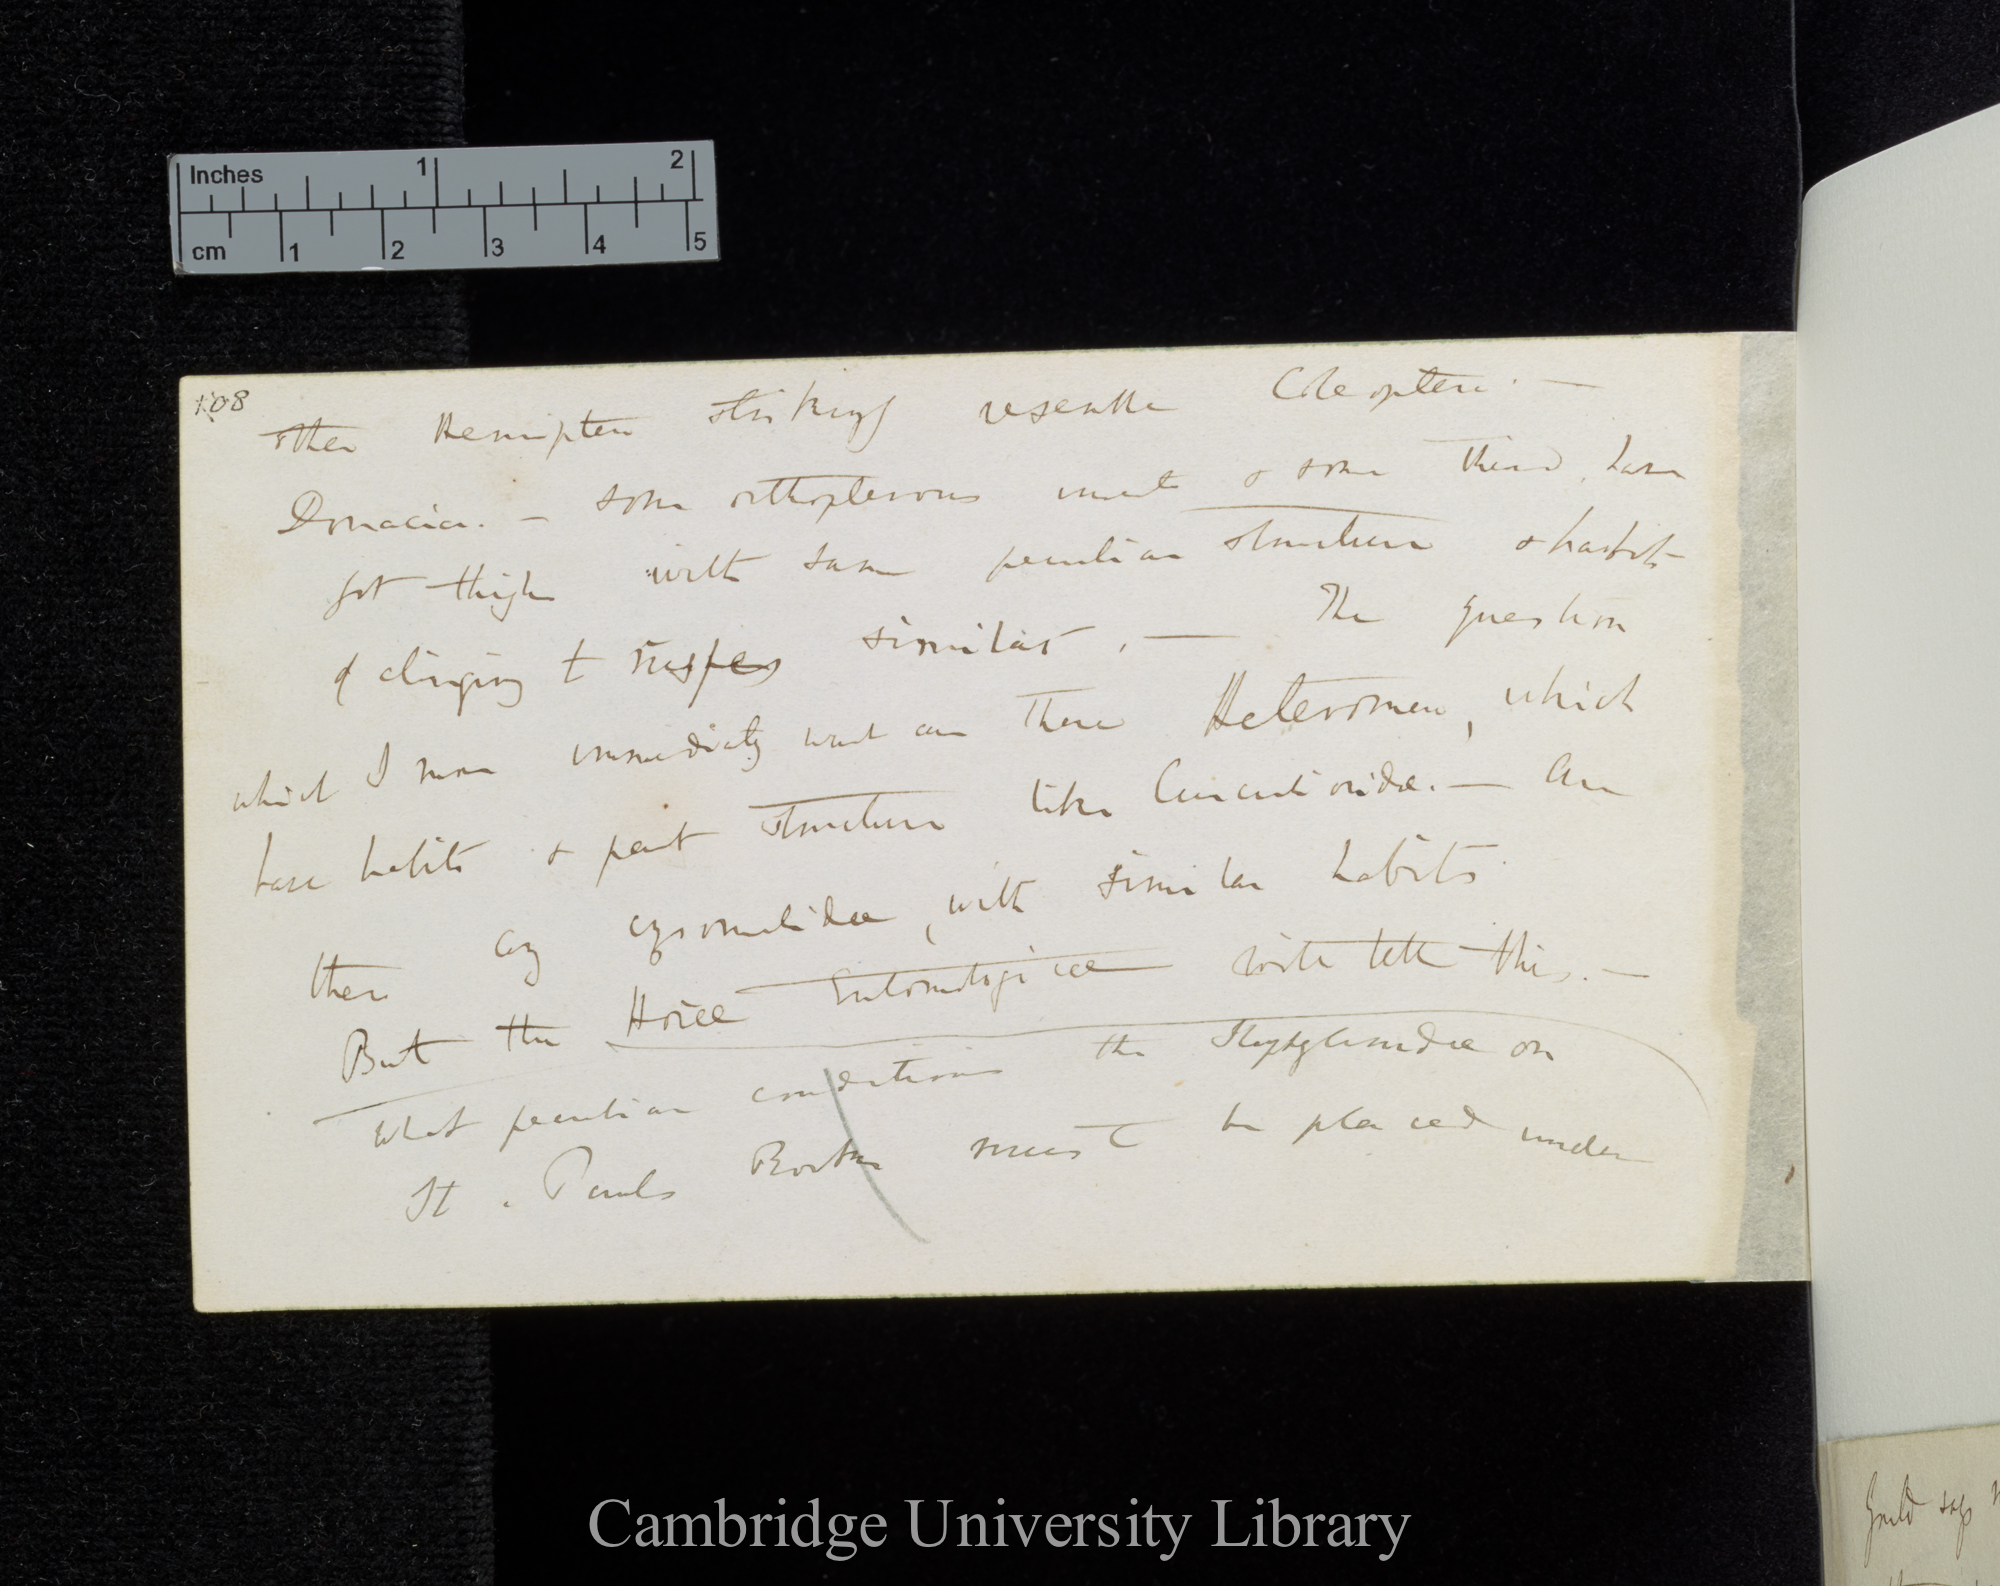 Inches 1 2
cm 1 2 3 4 5
108
other Hemiptera strikingly resemble Coleoptera. —
Donacia. — some orthopterous insect & some third, have
got thigh with same peculiar structure & habits
of clinging to similar. — The question
which I more immediately want are there Heteromera, which
have habits & part structure like Curculionidae. — Are
there any with similar habits
But the Horae Entomologicae will tell this. —
What peculiar conditions the on
St. Pauls Rocks must be placed under
Gould says
Cambridge University Library